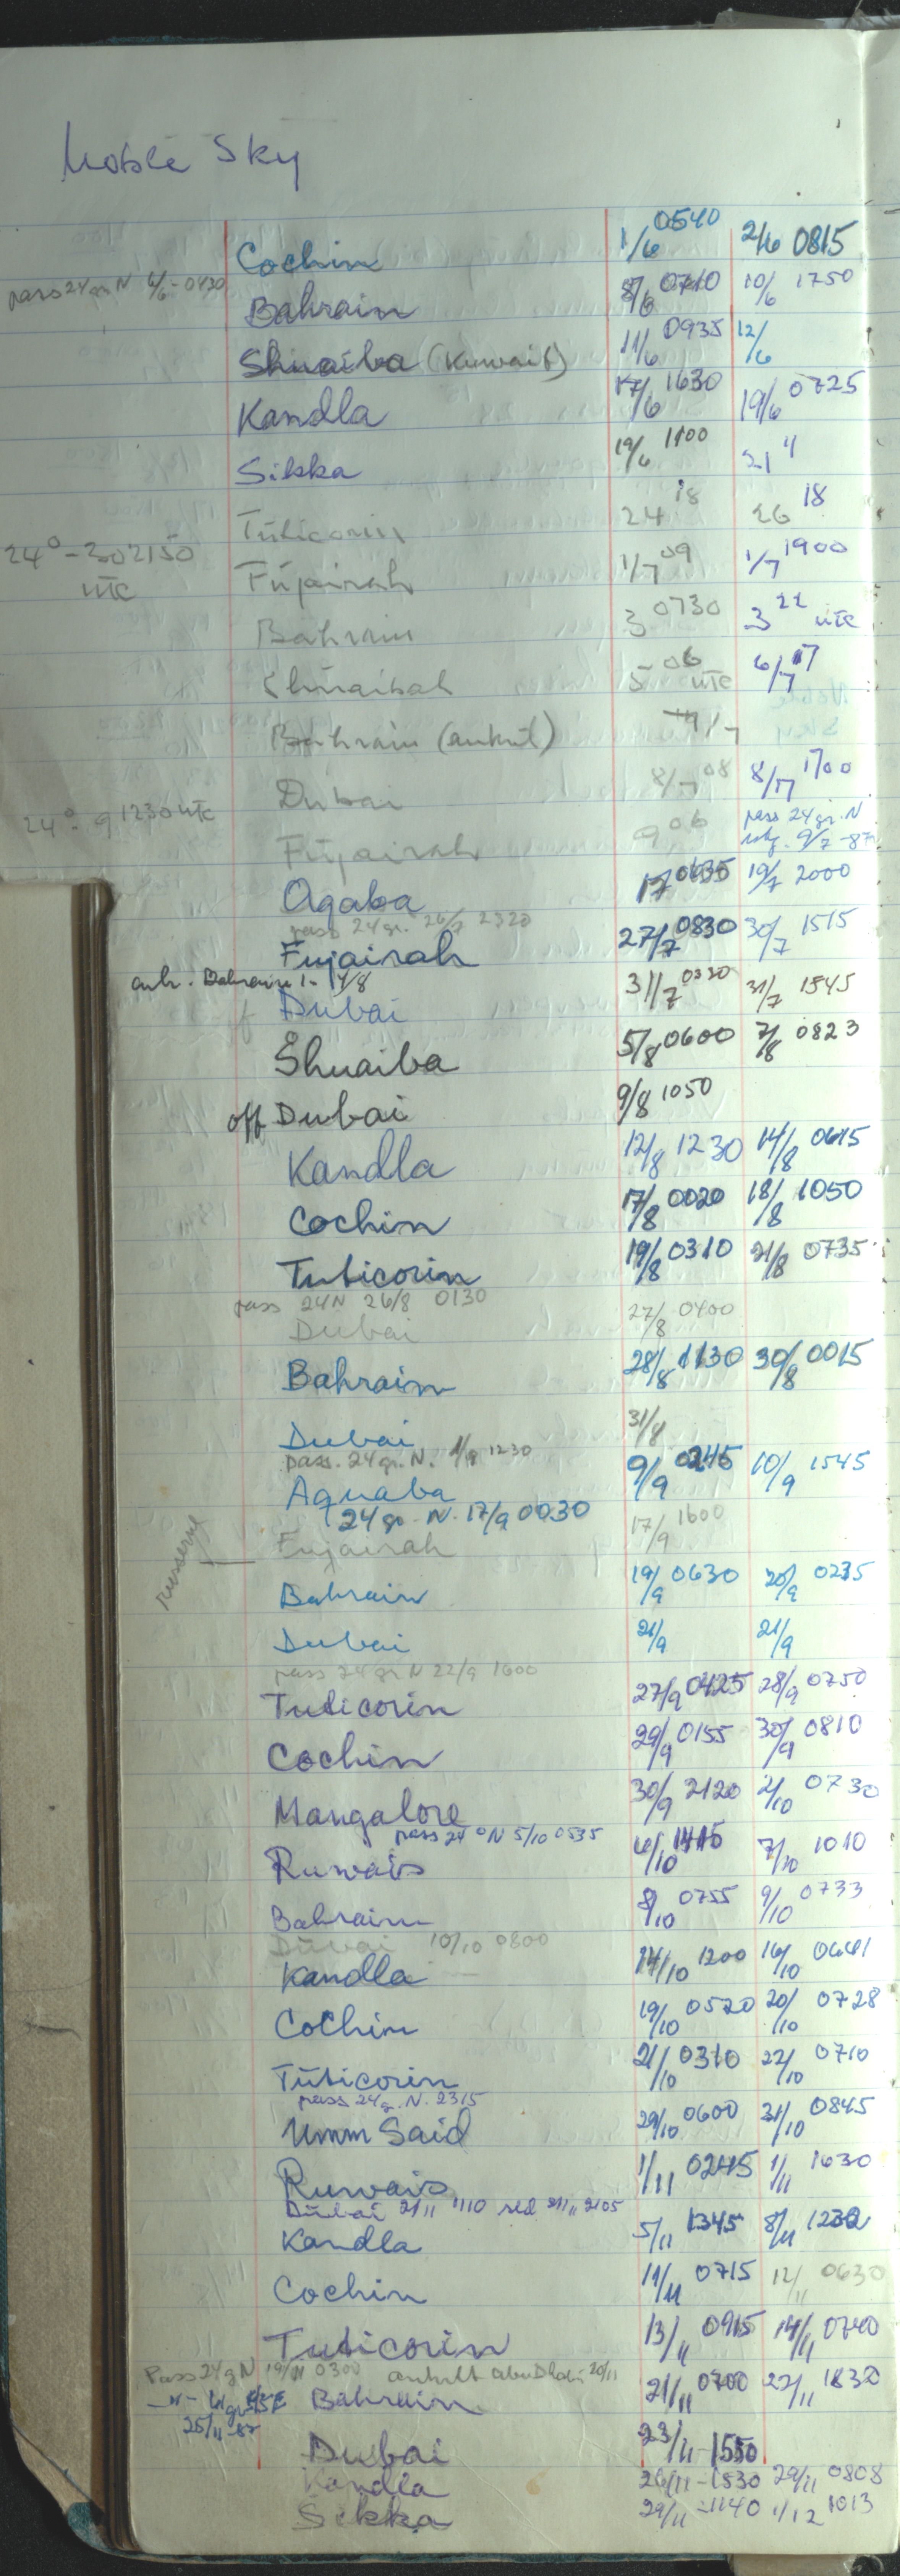 Noble Sky
Cochin 1/6 0540 2/6 0815
pass 24 gr N 6/6 - 0430
Bahrain 8/6 0710 10/6 1750
Shuaiba (Kuwait) 11/6 0935 12/6
Kandla 17/6 1630 19/6 0725
Sikka 19/6 1100 21 4
Tuticorin 24 18 26 18
24° - 30 2150 utc
Fujairah 1/7 09 1/7 1900
Bahrain 3 0730 3 22 utc
Shuaibah 5 06 utc 6/7 17
Bahrain /7
Dubai 8/7 08 8/7 1700
24° - 9 1230 utc
Fujairah 9 06 pass 24 gr. N
9/7 - 87
Aqaba 17 0635 19/7 2000
pass 24 gr. 26/7 2320
Fujairah 27/7 0830 30/7 1515
ank. Bahrain 1 - 14/8
Dubai 31/7 0330 31/7 1545
Shuaiba 5/8 0600 7/8 0823
off Dubai 9/8 1050
Kandla 12/8 1230 14/8 0615
Cochin 17/8 0020 18/8 1050
Tuticorin 19/8 0310 21/8 0735
pass 24 N 26/8 0130
Dubai 27/8 0400
Bahrain 28/8 1130 30/8 0015
Dubai 31/8
pass. 24 gr. N. 1/9 1230
Aquaba 9/9 0245 10/9 1545
24 gr N. 17/9 0030
Fujairah 17/9 1600
Bahrain 19/9 0630 20/9 0235
Dubai 21/9 21/9
pass 24 gr N 22/9 1600
Tuticorin 27/9 0425 28/9 0750
Cochin 29/9 0155 30/9 0810
Mangalore 30/9 2120 2/10 0730
pass 24° N 5/10 0535
Ruwais 6/10 1415 7/10 1010
Bahrain 8/10 0755 9/10 0733
Dubai 10/10 0800
Kandla 14/10 1200 16/10
Cochin 19/10 0520 20/10 0728
Tuticorin 21/10 0310 22/10 0710
pass 24 g. N. 2315
Umm Said 29/10 0600 31/10 0845
Ruwais 1/11 0245 1/11 1630
Dubai 2/11 1110 sld 2/11 2105
Kandla 5/11 1345 8/11 1230
Cochin 11/11 0715 12/11 0630
Tuticorin 13/11 0915 14/11 0740
Pass 24 g N 19/11 0300 ankult Abu Dhabi 20/11
Bahrain 21/11 0700 22/11 1830
25/11 - 87
Dubai 23/11 - 1550
Kandla 26/11 - 1530 29/11 0808
Sikka 29/11 - 1140 1/12 1013